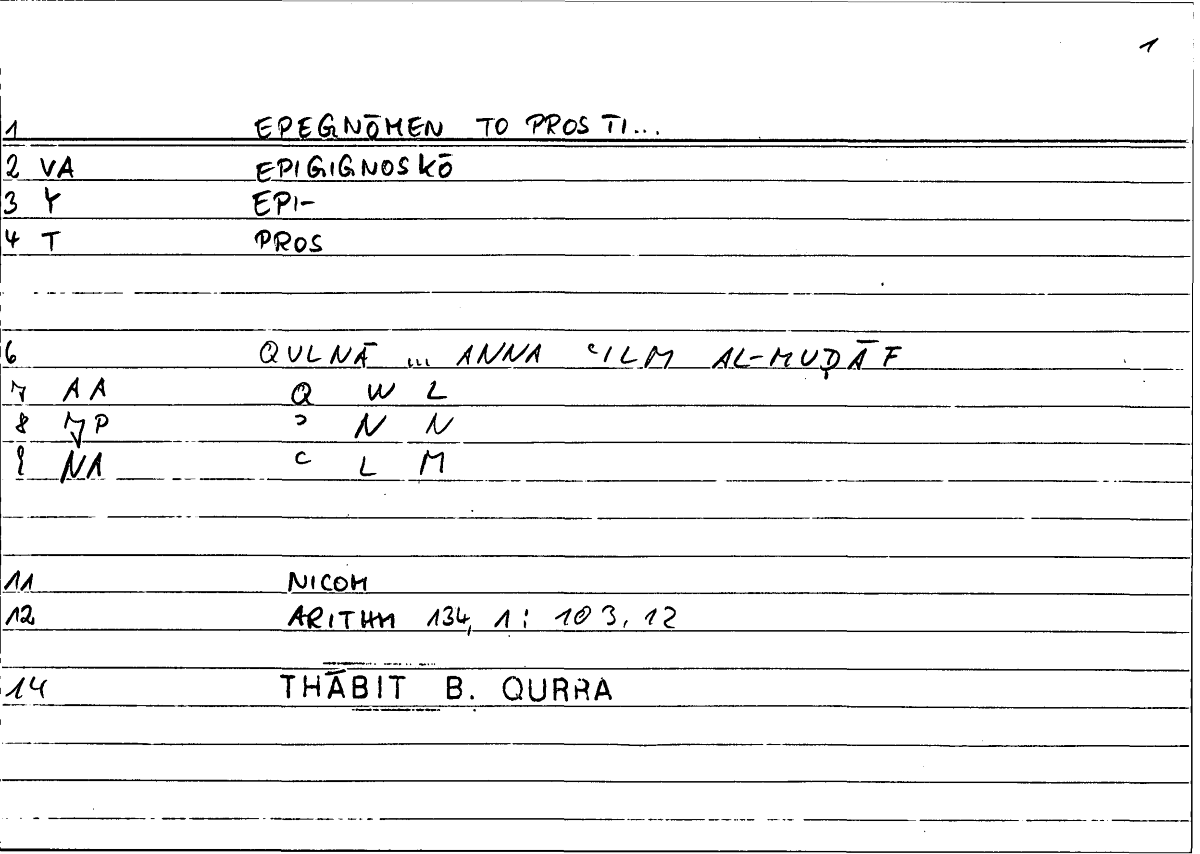 1
1 EPEGNŌMEN TO PROS TI...
2 VA EPIGIGNOSKŌ
3 Y EPI-
4 T PROS
6 QULNĀ ... ANNA ʿILM AL-MUḌĀF
7 AA Q W L
8 JP ʾ N N
9 NA ʿ L M
11 NICOM
12 ARITHM 134, 1 : 103, 12
14 THĀBIT B. QURRA